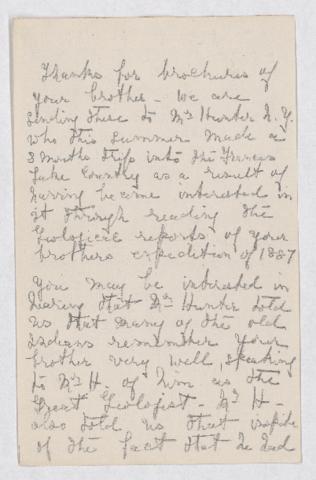 Thanks for brochures of
your brother - we are
sending these to Mr Hunter N.Y.
who this summer made a
3 months trip into the Frances
Lake Country as a result of
having become interested in
it through reading the
Geological reports of your
brothers expedition of 1887
You may be interested in
hearing that Mr Hunter told
us that many of the old
Indians remember your
brother very well, speaking
to Mr H. of him as the
Great Geologist - Mr H -
also told us that inspite
of the fact that he had